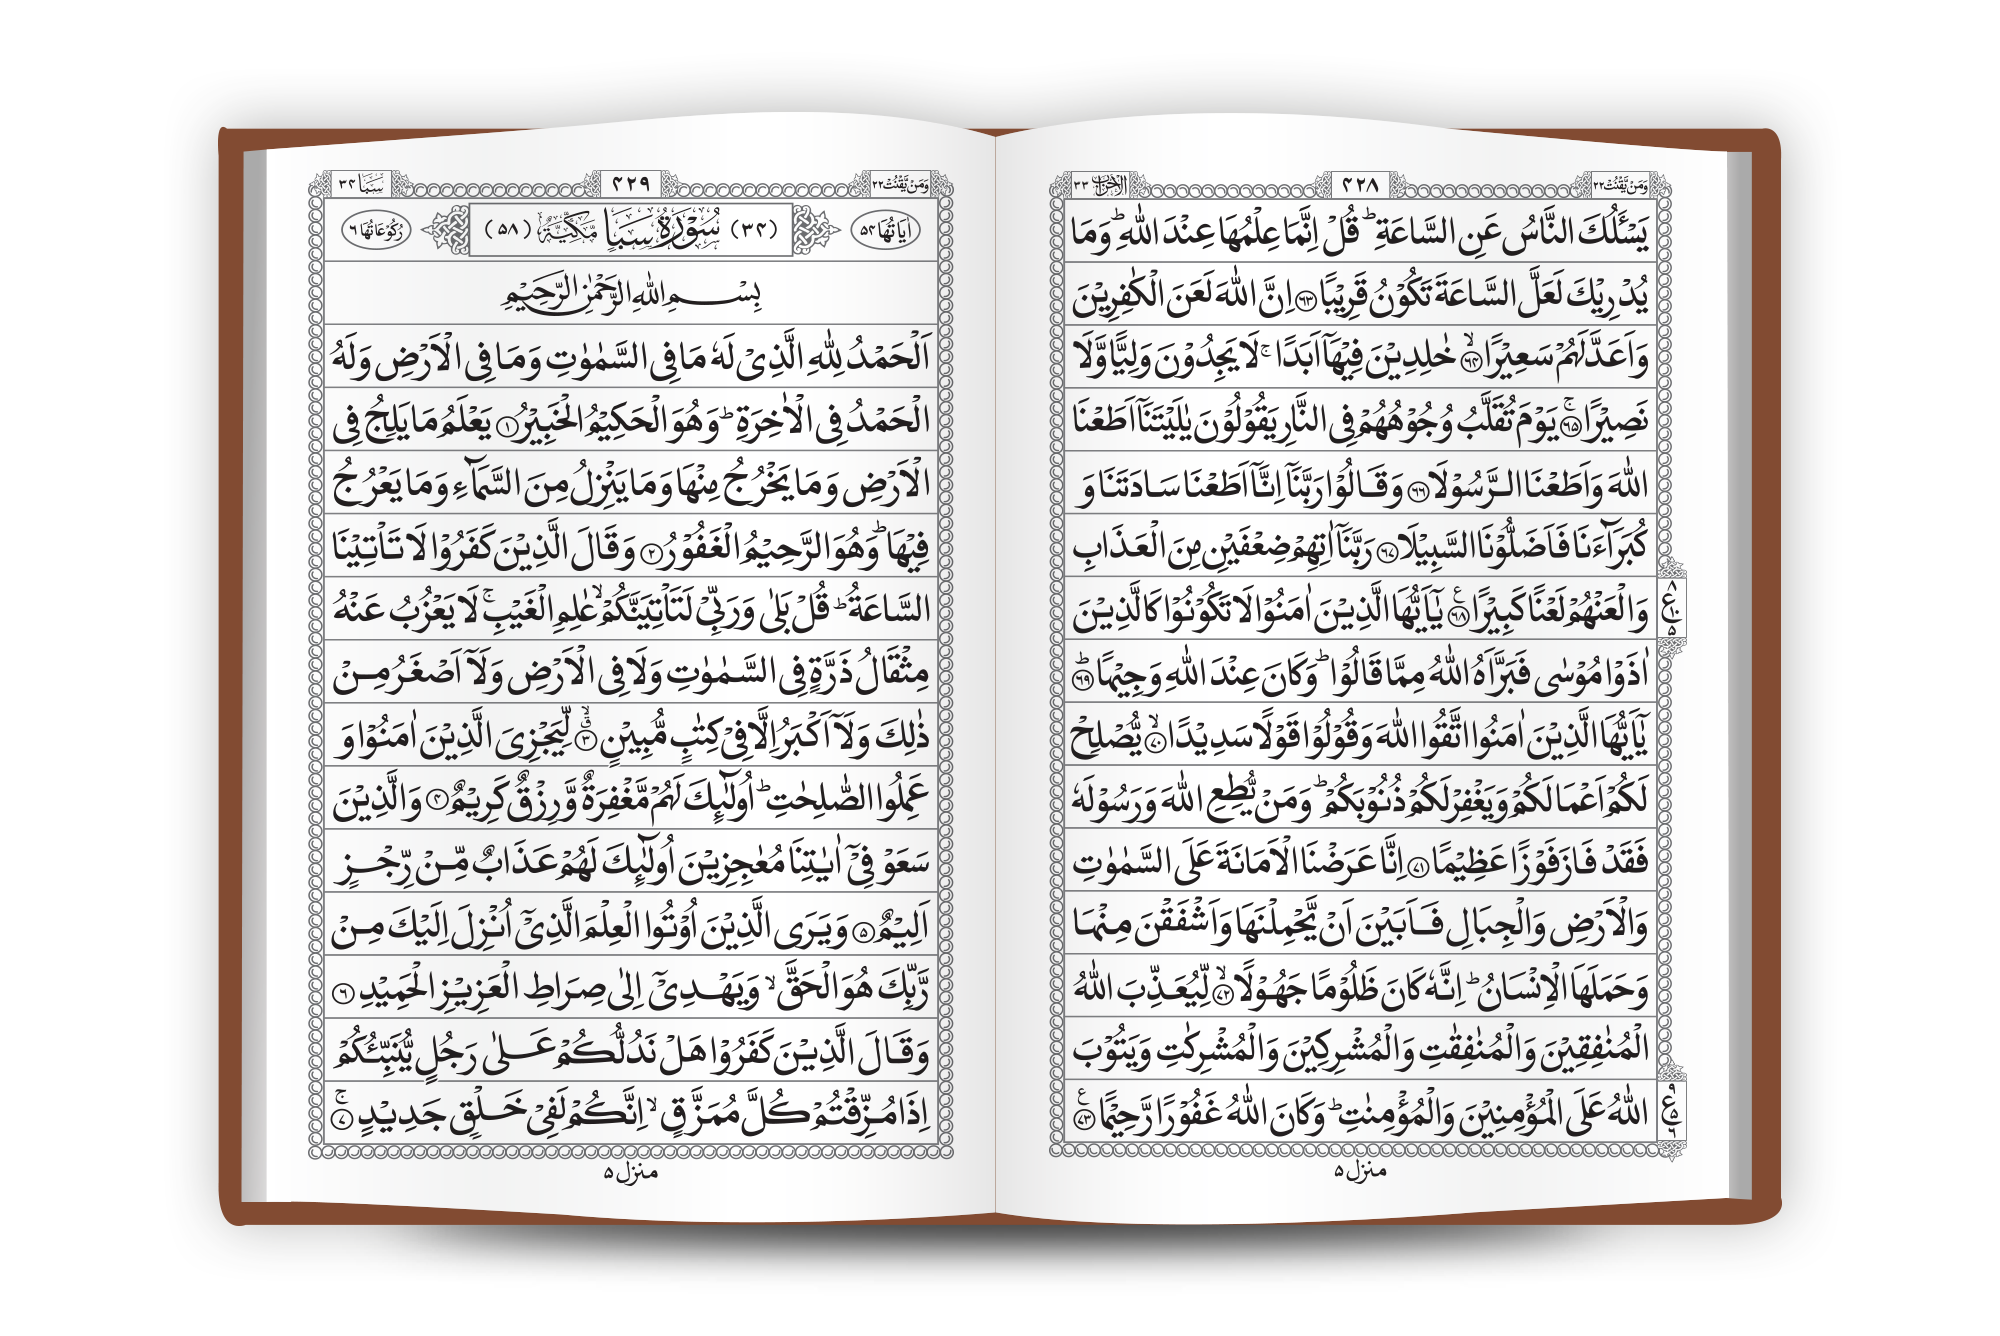 وَمَنْ يَّقْنُتْ ٢٢
٤٢٨
الْاَحْزَاب ٣٣
يَسْـَٔلُكَ النَّاسُ عَنِ السَّاعَةِ ؕ قُلْ اِنَّمَا عِلْمُهَا عِنْدَ اللّٰهِ ؕ وَمَا
يُدْرِيْكَ لَعَلَّ السَّاعَةَ تَكُوْنُ قَرِيْبًا ﴿٦٣﴾ اِنَّ اللّٰهَ لَعَنَ الْكٰفِرِيْنَ
وَاَعَدَّ لَهُمْ سَعِيْرًا ﴿٦٤﴾ۙ خٰلِدِيْنَ فِيْهَاۤ اَبَدًا ۚ لَا يَجِدُوْنَ وَلِيًّا وَّلَا
نَصِيْرًا ﴿٦٥﴾ۚ يَوْمَ تُقَلَّبُ وُجُوْهُهُمْ فِى النَّارِ يَقُوْلُوْنَ يٰلَيْتَنَاۤ اَطَعْنَا
اللّٰهَ وَاَطَعْنَا الرَّسُوْلَا ﴿٦٦﴾ وَقَالُوْا رَبَّنَاۤ اِنَّاۤ اَطَعْنَا سَادَتَنَا وَ
كُبَرَآءَنَا فَاَضَلُّوْنَا السَّبِيْلَا ﴿٦٧﴾ رَبَّنَاۤ اٰتِهِمْ ضِعْفَيْنِ مِنَ الْعَذَابِ
وَالْعَنْهُمْ لَعْنًا كَبِيْرًا ﴿٦٨﴾ۧ يٰۤاَيُّهَا الَّذِيْنَ اٰمَنُوْا لَا تَكُوْنُوْا كَالَّذِيْنَ
٨ ع ١٠ ٥
اٰذَوْا مُوْسٰى فَبَرَّاَهُ اللّٰهُ مِمَّا قَالُوْا ؕ وَكَانَ عِنْدَ اللّٰهِ وَجِيْهًا ﴿٦٩﴾ؕ
يٰۤاَيُّهَا الَّذِيْنَ اٰمَنُوا اتَّقُوا اللّٰهَ وَقُوْلُوْا قَوْلًا سَدِيْدًا ﴿٧٠﴾ۙ يُّصْلِحْ
لَكُمْ اَعْمَالَكُمْ وَيَغْفِرْ لَكُمْ ذُنُوْبَكُمْ ؕ وَمَنْ يُّطِعِ اللّٰهَ وَرَسُوْلَهٗ
فَقَدْ فَازَ فَوْزًا عَظِيْمًا ﴿٧١﴾ اِنَّا عَرَضْنَا الْاَمَانَةَ عَلَى السَّمٰوٰتِ
وَالْاَرْضِ وَالْجِبَالِ فَاَبَيْنَ اَنْ يَّحْمِلْنَهَا وَاَشْفَقْنَ مِنْهَا
وَحَمَلَهَا الْاِنْسَانُ ؕ اِنَّهٗ كَانَ ظَلُوْمًا جَهُوْلًا ﴿٧٢﴾ۙ لِّيُعَذِّبَ اللّٰهُ
الْمُنٰفِقِيْنَ وَالْمُنٰفِقٰتِ وَالْمُشْرِكِيْنَ وَالْمُشْرِكٰتِ وَيَتُوْبَ
اللّٰهُ عَلَى الْمُؤْمِنِيْنَ وَالْمُؤْمِنٰتِ ؕ وَكَانَ اللّٰهُ غَفُوْرًا رَّحِيْمًا ﴿٧٣﴾ۧ
٩ ع ٥ ٦
منزل ٥
وَمَنْ يَّقْنُتْ ٢٢
٤٢٩
سَبَا ٣٤
اٰيَاتُهَا ٥٤
(٣٤) سُوْرَةُ سَبَاٍ مَّكِّيَّةٌ (٥٨)
رُكُوْعَاتُهَا ٦
بِسْمِ اللّٰهِ الرَّحْمٰنِ الرَّحِيْمِ
اَلْحَمْدُ لِلّٰهِ الَّذِىْ لَهٗ مَا فِى السَّمٰوٰتِ وَمَا فِى الْاَرْضِ وَلَهُ
الْحَمْدُ فِى الْاٰخِرَةِ ؕ وَهُوَ الْحَكِيْمُ الْخَبِيْرُ ﴿١﴾ يَعْلَمُ مَا يَلِجُ فِى
الْاَرْضِ وَمَا يَخْرُجُ مِنْهَا وَمَا يَنْزِلُ مِنَ السَّمَآءِ وَمَا يَعْرُجُ
فِيْهَا ؕ وَهُوَ الرَّحِيْمُ الْغَفُوْرُ ﴿٢﴾ وَقَالَ الَّذِيْنَ كَفَرُوْا لَا تَاْتِيْنَا
السَّاعَةُ ؕ قُلْ بَلٰى وَرَبِّىْ لَتَاْتِيَنَّكُمْ ۙ عٰلِمِ الْغَيْبِ ۚ لَا يَعْزُبُ عَنْهُ
مِثْقَالُ ذَرَّةٍ فِى السَّمٰوٰتِ وَلَا فِى الْاَرْضِ وَلَاۤ اَصْغَرُ مِنْ
ذٰلِكَ وَلَاۤ اَكْبَرُ اِلَّا فِىْ كِتٰبٍ مُّبِيْنٍ ﴿٣﴾ۙ لِّيَجْزِىَ الَّذِيْنَ اٰمَنُوْا وَ
عَمِلُوا الصّٰلِحٰتِ ؕ اُولٰٓئِكَ لَهُمْ مَّغْفِرَةٌ وَّرِزْقٌ كَرِيْمٌ ﴿٤﴾ وَالَّذِيْنَ
سَعَوْ فِىْۤ اٰيٰتِنَا مُعٰجِزِيْنَ اُولٰٓئِكَ لَهُمْ عَذَابٌ مِّنْ رِّجْزٍ
اَلِيْمٌ ﴿٥﴾ وَيَرَى الَّذِيْنَ اُوْتُوا الْعِلْمَ الَّذِىْۤ اُنْزِلَ اِلَيْكَ مِنْ
رَّبِّكَ هُوَ الْحَقَّ ۙ وَيَهْدِىْۤ اِلٰى صِرَاطِ الْعَزِيْزِ الْحَمِيْدِ ﴿٦﴾
وَقَالَ الَّذِيْنَ كَفَرُوْا هَلْ نَدُلُّكُمْ عَلٰى رَجُلٍ يُّنَبِّئُكُمْ
اِذَا مُزِّقْتُمْ كُلَّ مُمَزَّقٍ ۙ اِنَّكُمْ لَفِىْ خَلْقٍ جَدِيْدٍ ﴿٧﴾ۚ
منزل ٥